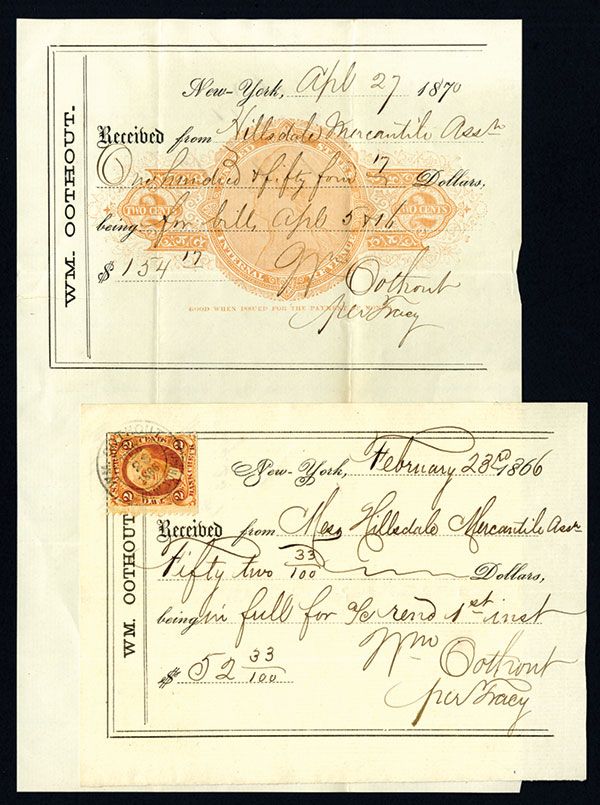 WM. OOTHOUT.
New-York, Apl 27 1870
Received from Hillsdale Mercantile Assn
One hundred & fifty four 17 Dollars,
TWO CENTS TWO CENTS
being for bill Apl 5 & 16
INTERNAL REVENUE
$ 154 17
Wm Oothout
GOOD WHEN ISSUED FOR THE PAYMENT OF MONEY
per Tracy
WM. OOTHOUT
2 CENTS 2
New-York, February 23rd 1866
Received from Mess Hillsdale Mercantile Assn
Fifty two 33/100 Dollars,
being in full for a/c rend 1st inst
Wm Oothout
$ 52 33/100
per Tracy